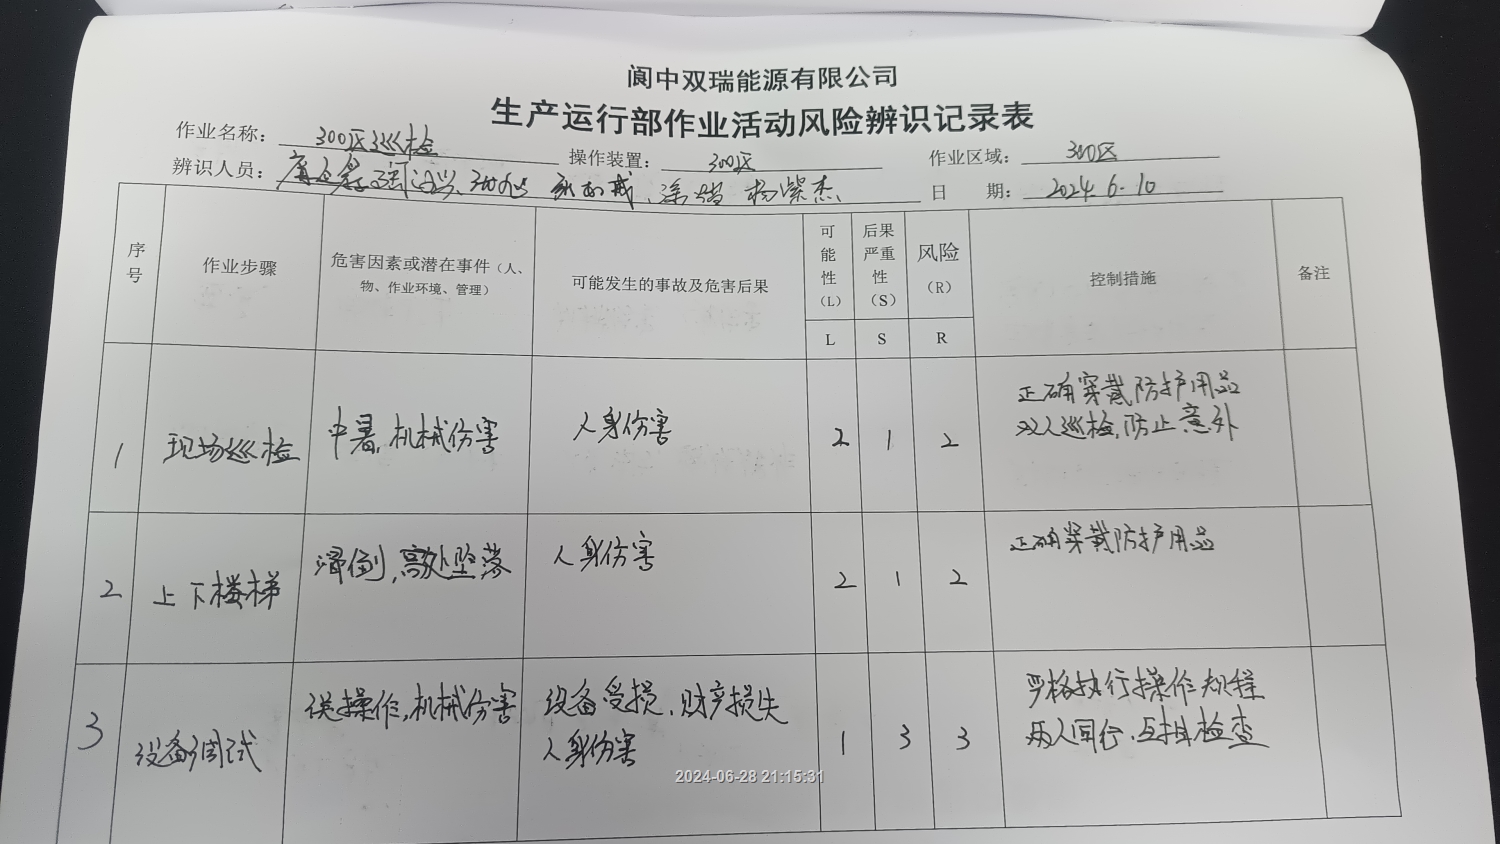 阆中双瑞能源有限公司
生产运行部作业活动风险辨识记录表
作业名称： 300区巡检 操作装置： 300区 作业区域： 300区
辨识人员： 杨紫杰 日 期： 2024.6.10
序号 作业步骤 危害因素或潜在事件（人、物、作业环境、管理） 可能发生的事故及危害后果 可能性（L） 后果严重性（S） 风险（R） 控制措施 备注
L S R
1 现场巡检 中暑,机械伤害 人身伤害 2 1 2 正确穿戴防护用品
双人巡检,防止意外
2 上下楼梯 滑倒,高处坠落 人身伤害 2 1 2 正确穿戴防护用品
3 设备调试 误操作,机械伤害 设备受损,财产损失 1 3 3 严格执行操作规程
人身伤害 两人同行,互相检查
2024-06-28 21:15:31